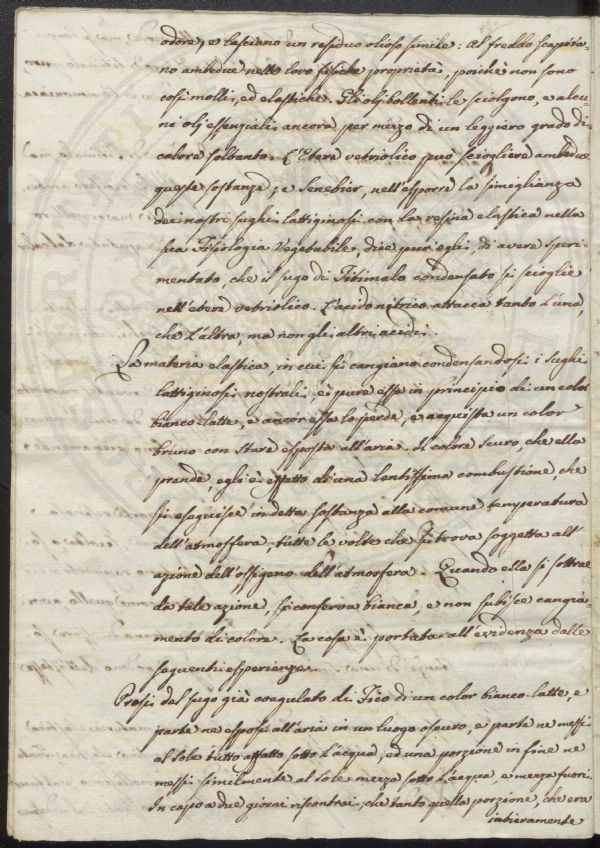 odore, e lasciano un residuo olioso simile: al freddo scapita-
no amedue nelle loro fisiche proprietà, poichè non sono
così molli, ed elastiche. Gli olj bollenti le sciolgono, e alcu-
ni olj essenziali ancora per mezzo di un leggiero grado di
calore soltanto. L'Etere vetriolico può sciogliere ambedue
queste sostanze; e Senebier, nell'esporre la simiglianza
dei nostri sughi lattiginosi con la resina elastica nella
sua Fisiologia Vegetabile, dice pur egli, di avere speri-
mentato, che il sugo di Titimalo condensato si scioglie
nell'etere vetriolico. L'acido nitrico attacca tanto l'una,
che l'altra, ma non gli altri acidi.
La materia elastica, in cui si cangiano condensandosi i sughi
lattiginosi nostrali, è pure essa in principio di un color
bianco latte, e ancor essa lo perde, e acquista un color
bruno con stare esposta all'aria. Il colore scuro, che ella
prende, egli è effetto di una lentissima combustione, che
si eseguisce in detta sostanza alla comune temperatura
dell'atmosfera, tutte le volte che si trova soggetta all'
azione dell'ossigeno dell'atmosfera. Quando ella si sottrae
da tale azione, si conserva bianca, e non subisce cangia-
mento di colore. La cosa è portata all'evidenza dalle
seguenti esperienze.
Presi del sugo già coagulato di Fico di un color bianco-latte, e
parte ne esposi all'aria in un luogo oscuro, e parte ne messi
al Sole tutto affatto sotto l'acqua, ed una porzione in fine ne
messi similmente al Sole mezza sotto l'acqua, e mezza fuori.
In capo a due giorni riscontrai, che tanto quella porzione, che era
intieramente